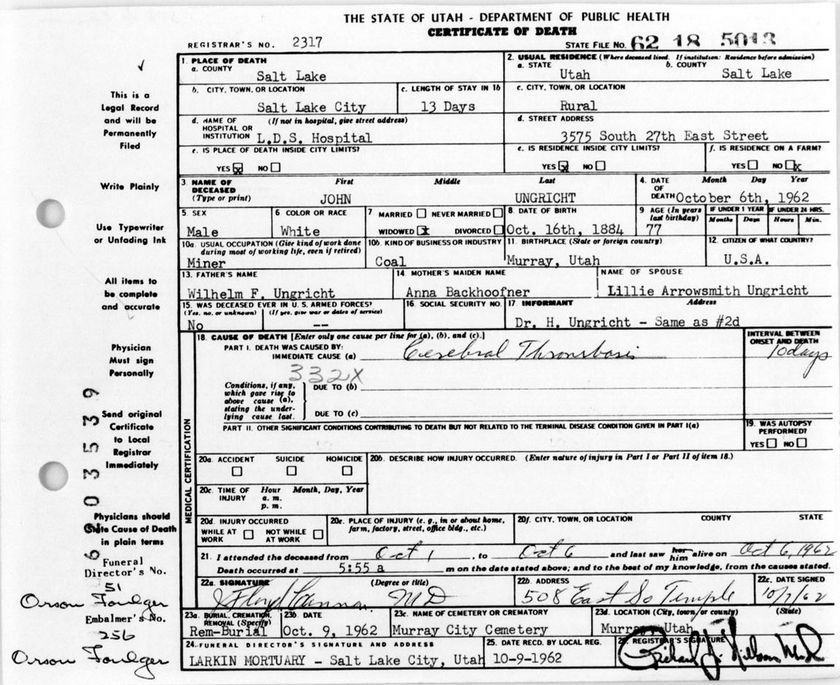 THE STATE OF UTAH - DEPARTMENT OF PUBLIC HEALTH
CERTIFICATE OF DEATH
REGISTRAR'S NO. 2317
STATE FILE NO. 62 18 5013
This is a Legal Record and will be Permanently Filed
Write Plainly
Use Typewriter or Unfading Ink
All items to be complete and accurate
Physician Must sign Personally
Send original Certificate to Local Registrar Immediately
Physicians should State Cause of Death in plain terms
Funeral Director's No.
51
Orson Foulger
Embalmer's No.
256
Orson Foulger
6203539
1. PLACE OF DEATH
a. COUNTY
Salt Lake
2. USUAL RESIDENCE (Where deceased lived. If institution: Residence before admission)
a. STATE b. COUNTY
Utah Salt Lake
b. CITY, TOWN, OR LOCATION
Salt Lake City
c. LENGTH OF STAY IN 1b
13 Days
c. CITY, TOWN, OR LOCATION
Rural
d. NAME OF HOSPITAL OR INSTITUTION (If not in hospital, give street address)
L.D.S. Hospital
d. STREET ADDRESS
3575 South 27th East Street
e. IS PLACE OF DEATH INSIDE CITY LIMITS?
YES X NO
e. IS RESIDENCE INSIDE CITY LIMITS?
YES X NO
f. IS RESIDENCE ON A FARM?
YES NO X
3. NAME OF DECEASED (Type or print)
First Middle Last
JOHN UNGRICHT
4. DATE OF DEATH
Month Day Year
October 6th, 1962
5. SEX
Male
6 COLOR OR RACE
White
7 MARRIED NEVER MARRIED
WIDOWED X DIVORCED
8. DATE OF BIRTH
Oct. 16th, 1884
9 AGE (In years last birthday)
77
IF UNDER 1 YEAR
Months Days
IF UNDER 24 HRS.
Hours Min.
10a. USUAL OCCUPATION (Give kind of work done during most of working life, even if retired)
Miner
10b. KIND OF BUSINESS OR INDUSTRY
Coal
11. BIRTHPLACE (State or foreign country)
Murray, Utah
12. CITIZEN OF WHAT COUNTRY?
U.S.A.
13. FATHER'S NAME
Wilhelm F. Ungricht
14 MOTHER'S MAIDEN NAME
Anna Backhoofner
NAME OF SPOUSE
Lillie Arrowsmith Ungricht
15. WAS DECEASED EVER IN U. S. ARMED FORCES?
(Yes, no, or unknown) (If yes, give war or dates of service)
No --
16. SOCIAL SECURITY NO.
17 INFORMANT Address
Dr. H. Ungricht - Same as #2d
MEDICAL CERTIFICATION
18. CAUSE OF DEATH [Enter only one cause per line for (a), (b), and (c).]
PART I. DEATH WAS CAUSED BY:
IMMEDIATE CAUSE (a) Cerebral Thrombosis
INTERVAL BETWEEN ONSET AND DEATH
10 days
332X
Conditions, if any, which gave rise to above cause (a), stating the underlying cause last.
DUE TO (b)
DUE TO (c)
PART II. OTHER SIGNIFICANT CONDITIONS CONTRIBUTING TO DEATH BUT NOT RELATED TO THE TERMINAL DISEASE CONDITION GIVEN IN PART I(a)
19. WAS AUTOPSY PERFORMED?
YES NO
20a. ACCIDENT SUICIDE HOMICIDE
20b. DESCRIBE HOW INJURY OCCURRED. (Enter nature of injury in Part I or Part II of item 18.)
20c. TIME OF INJURY
Hour Month, Day, Year
a. m.
p. m.
20d. INJURY OCCURRED
WHILE AT WORK NOT WHILE AT WORK
20e. PLACE OF INJURY (e. g., in or about home, farm, factory, street, office bldg., etc.)
20f. CITY, TOWN, OR LOCATION COUNTY STATE
21. I attended the deceased from Oct 1, to Oct 6 and last saw her him alive on Oct 6, 1962
Death occurred at 5:55 a m on the date stated above; and to the best of my knowledge, from the causes stated.
22a. SIGNATURE (Degree or title)
J Floyd Cannon MD
22b. ADDRESS
508 East So Temple
22c. DATE SIGNED
10/7/62
23a. BURIAL, CREMATION, REMOVAL (Specify)
Rem-Burial
23b DATE
Oct. 9, 1962
23c. NAME OF CEMETERY OR CREMATORY
Murray City Cemetery
23d. LOCATION (City, town, or county) (State)
Murray Utah
24. FUNERAL DIRECTOR'S SIGNATURE AND ADDRESS
LARKIN MORTUARY - Salt Lake City, Utah
25. DATE RECD. BY LOCAL REG.
10-9-1962
26. REGISTRAR'S SIGNATURE